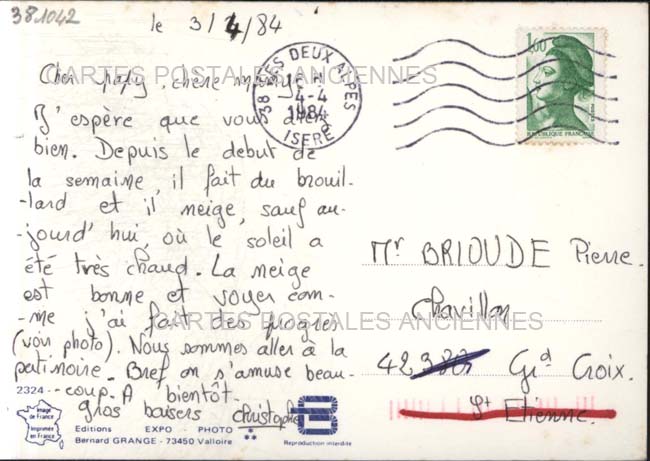 381042
le 3/4/84
Cher papy, chère mamy
J'espère que vous allez
bien. Depuis le debut de
la semaine, il fait du brouil-
-lard et il neige, sauf au-
-jourd'hui, où le soleil a
été très chaud. La neige
est bonne et voyez com-
-me j'ai fait des progres
(voir photo). Nous sommes aller à la
patinoire. Bref on s'amuse beau-
-coup. A bientôt.
gros baisers christophe
CARTES POSTALES ANCIENNES
CARTES POSTALES ANCIENNES
38 LES DEUX ALPES
4-4
1984
ISERE
1,60
POSTES
REPUBLIQUE FRANÇAISE
Mr BRIOUDE Pierre.
Chavillon
42 Gd Croix.
St Etienne.
2324
Image
de France
Imprimée
en France
Editions EXPO - PHOTO **
Bernard GRANGE - 73450 Valloire
Reproduction interdite